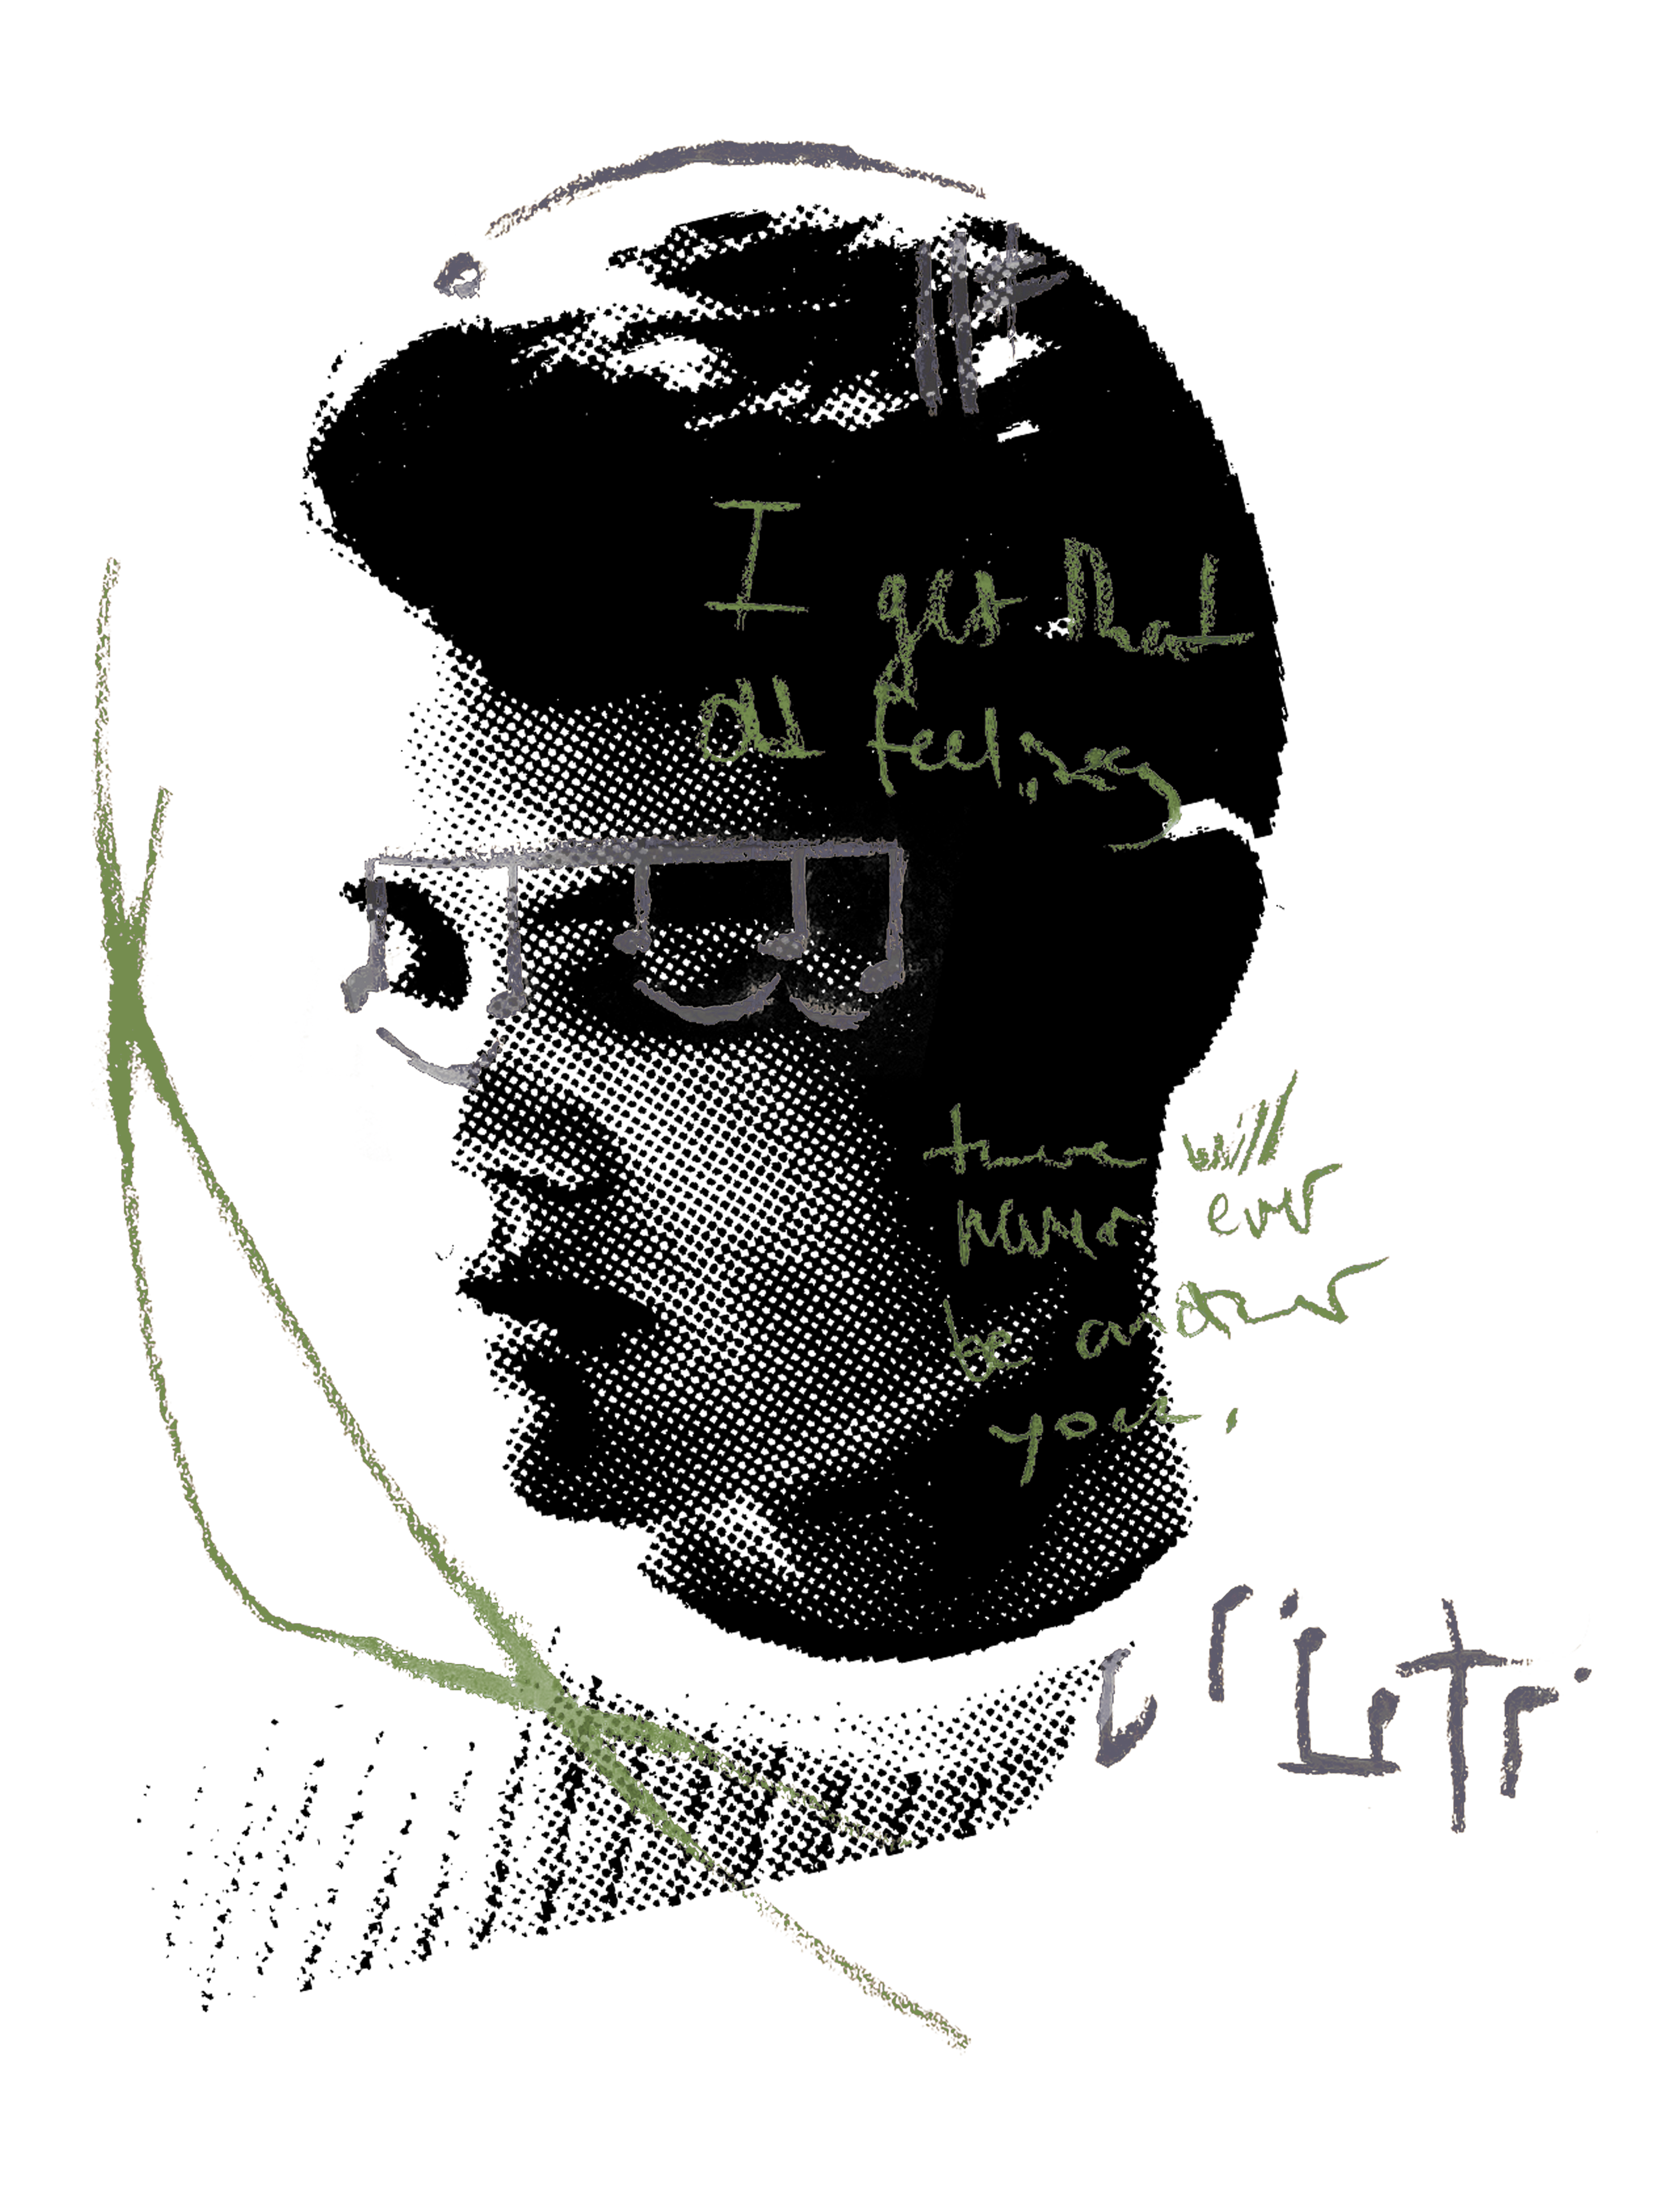 I get that
old feeling
there will
never ever
be another
you.